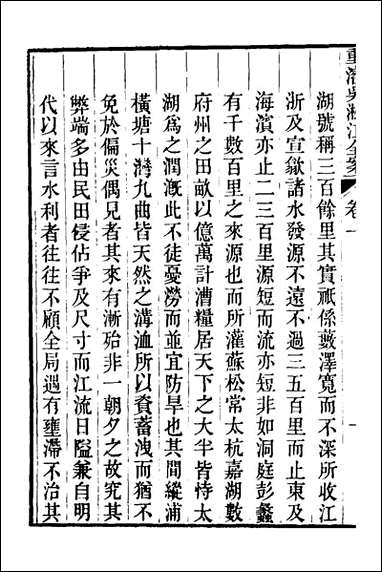 重濬吳淞江全案 卷一
湖號稱三百餘里其實祇係藪澤寬而不深所收江
浙及宣歙諸水發源不遠不過三五百里而止東及
海濱亦止二三百里源短而流亦短非如洞庭彭蠡
有千數百里之來源也而所灌蘇松常太杭嘉湖數
府州之田畝以億萬計漕糧居天下之大半皆恃太
湖爲之潤漑此不徒憂澇而並宜防旱也其間縱浦
橫塘十灣九曲皆天然之溝洫所以資蓄洩而猶不
免於偏災偶見者其來有漸殆非一朝夕之故究其
弊端多由民田侵佔爭及尺寸而江流日隘兼自明
代以來言水利者往往不顧全局遇有壅滯不治其